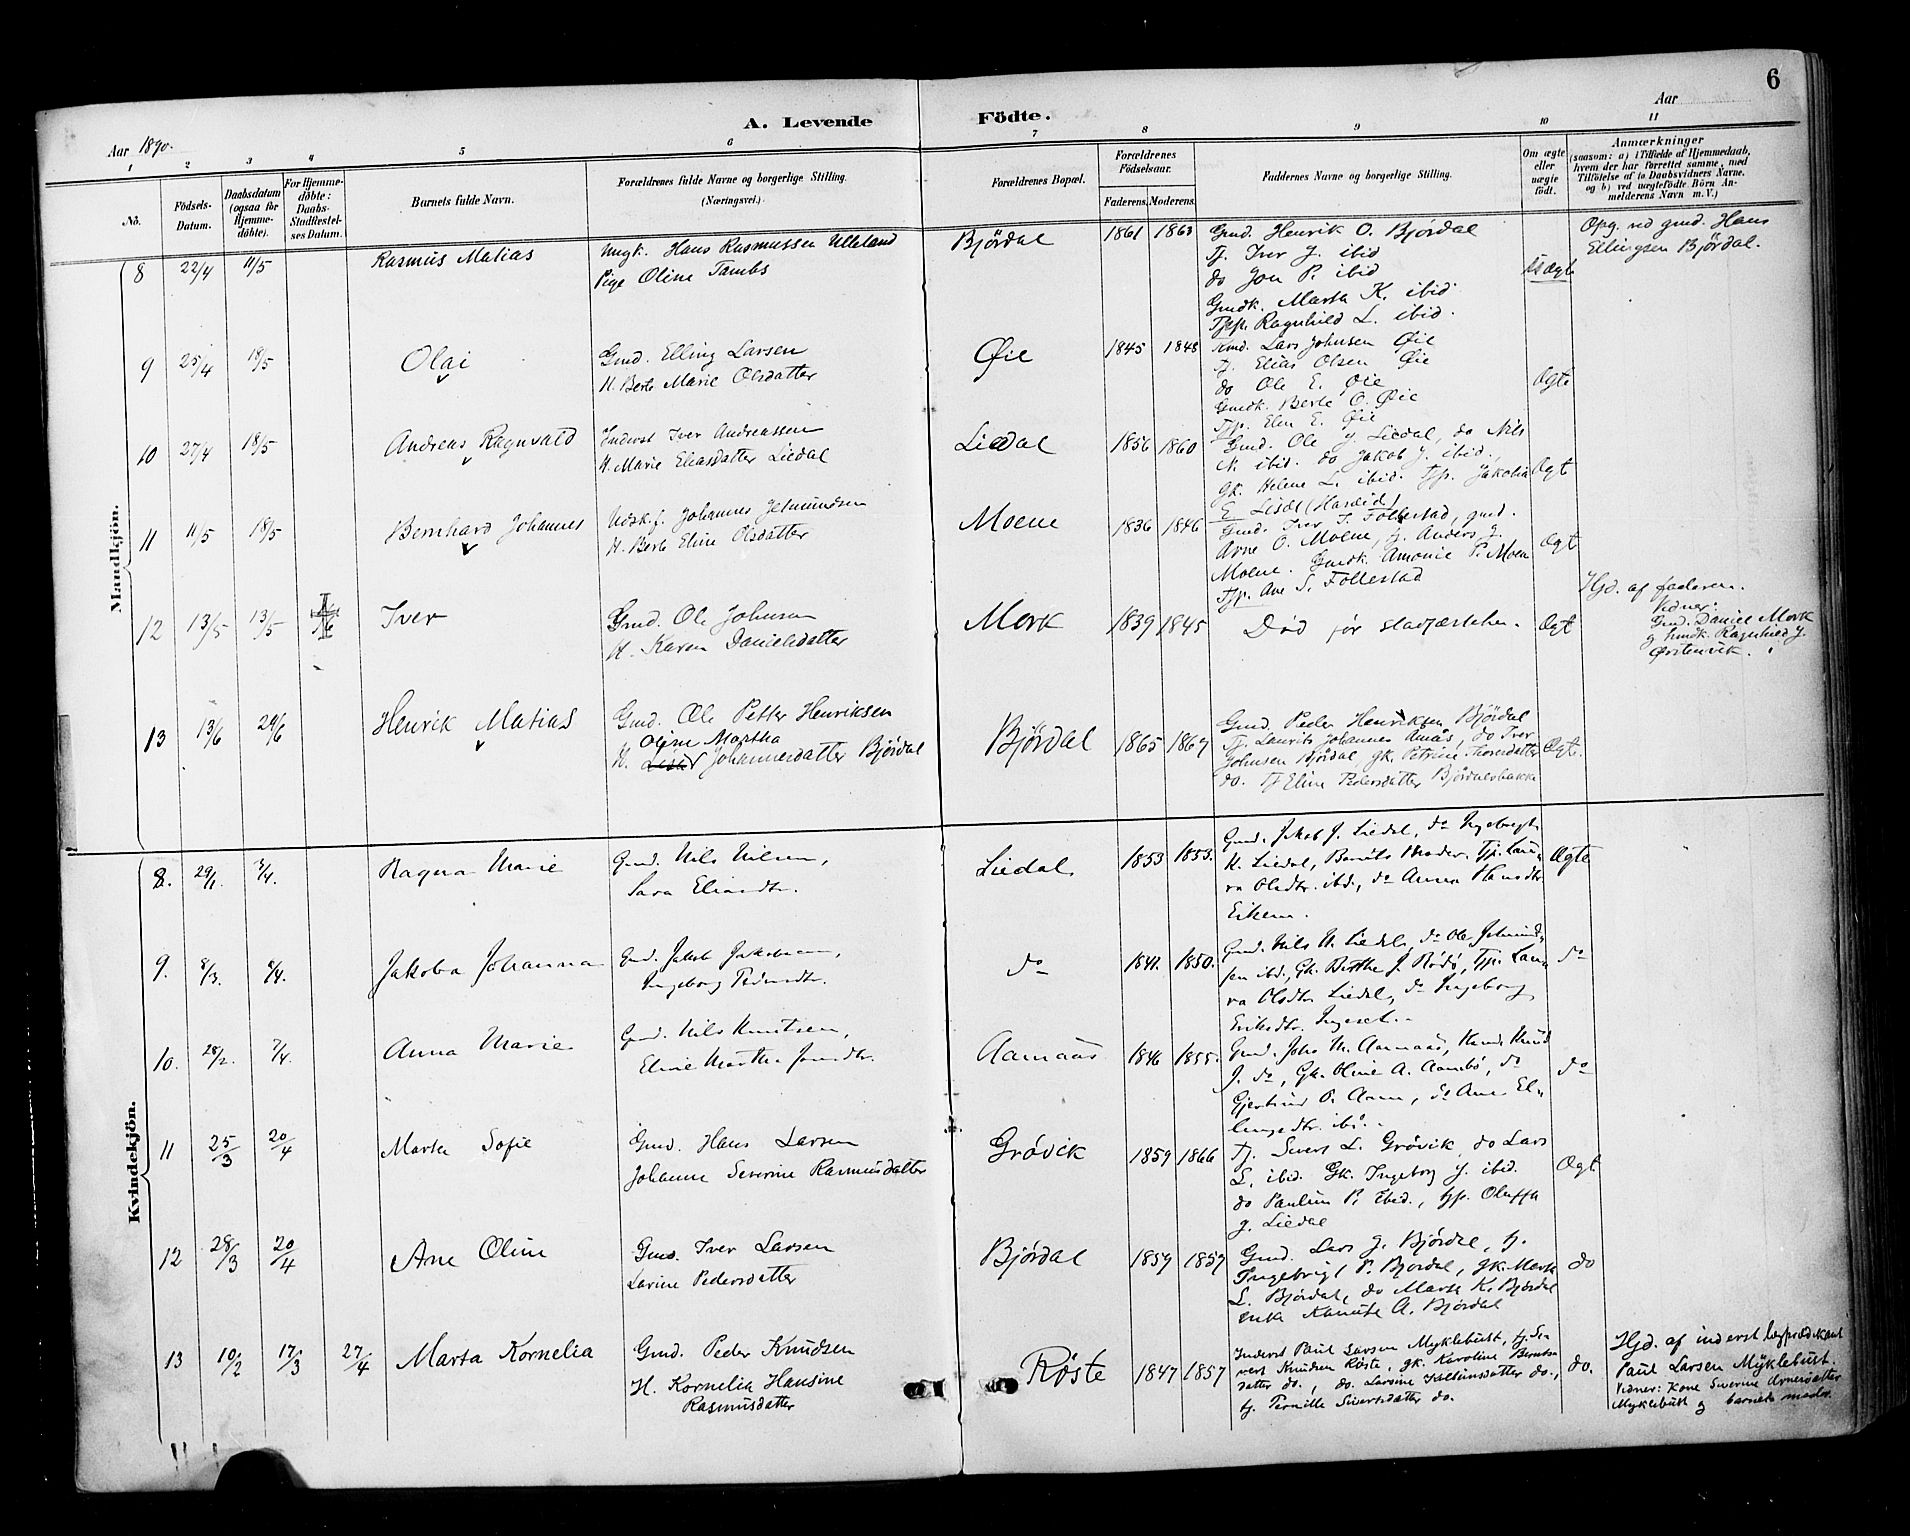 6
A. Levende Födte.
Aar 1890.
Aar
1 2 3 4 5 6 7 8 9 10 11
Nö.
Födsels-Datum.
Daabsdatum (ogsaa for Hjemme-döbte).
For Hjemme-döbte: Daabs-Stadfæstel-ses Datum.
Barnets fulde Navn.
Forældrenes fulde Navne og borgerlige Stilling. (Næringsvei.)
Forældrenes Bopæl.
Forældrenes Födselsaar.
Faderens. Moderens.
Faddernes Navne og borgerlige Stilling.
Om ægte eller uægte födt.
Anmærkninger
(saasom: a) i Tilfælde af Hjemmedaab, hvem der har forrettet samme, med Tilföielse af to Daabsvidners Navne, og b) ved uægtefödte Börn An-melderens Navn m. V.)
Mandkjön.
8 22/4 11/5 Rasmus Matias Ungk. Hans Rasmussen Ulleland
Pige Oline Tambs
Bjørdal 1861 1863 Gmd. Henrik O. Bjørdal
Tj. Iver J. ibid
do Jon P. ibid
Gmdk. Marta K. ibid.
Tjp. Ragnhild L. ibid.
Uægte
Opg. ved gmd. Hans
Ellingsen Bjørdal.
9 25/4 18/5 Olai Gmd. Elling Larsen
H. Berte Marie Olsdatter
Øie 1845 1848 Kmd. Lars Johnsen Øie
Tj. Elias Olsen Øie
do Ole E. Øie
Gmdk. Berte O. Øie
Tjp. Elen E. Øie
Ægte
10 27/4 18/5 Andreas Ragnvald Inderst Iver Andreassen
H. Marie Eliasdatter Liedal
Liedal 1856 1860 Gmd. Ole J. Liedal, do Nils
N. ibid. do Jakob J. ibid.,
Gk. Helene L. ibid. Tjp. Jakobia
E. Liedal (Hareid)
Ægt
11 11/5 18/5 Bernhard Johannes Udsk.f. Johannes Jetmundsen
H. Berte Eline Olsdatter
Moene 1836 1846 Gmd. Iver I. Follestad, gmd.
Arne O. Moene, tj. Anders J.
Moene. Gmdk. Amonie P. Moen
Tjp. Ane S. Follestad
Ægt
12 13/5 13/5 Iver Gmd. Ole Johnsen
H. Karen Danielsdatter
Mork 1839 1845 Død før stadfæstelsen. Ægt
Hjd. af faderen.
Vidner:
Gmd. Daniel Mork
g hmdk. Ragnhild J.
Ørstenvik.
13 13/6 29/6 Henrik Matias Gmd. Ole Petter Henriksen
Oline Martha
H. Johannesdatter Bjørdal
Bjørdal 1865 1867 Gmd. Peder Henriksen Bjørdal
Tj. Laurits Johannes Amås, do Iver
Johnsen Bjørdal, gk. Petrine Iversdatter
do. Tj Eline Pedersdatter Bjørdalsbakke
Ægte.
Kvindekjön.
8. 29/1. 7/4. Ragna Marie Gmd. Nils Nilsen,
Sara Eliasdtr.
Liedal 1853 1853. Gmd. Jakob J. Liedal, do Ingebrigt
K. Liedal, Barnets Moder. Tjp. Lau-
ra Olsdtr. ibd., do Anna Hansdtr
Eikrem.
Ægte
9. 8/3. 7/4. Jakoba Johanna Gmd. Jakob Jakobsen,
Ingeborg Pedersdtr.
do 1841. 1850. Gmd. Nils N. Liedal, do Ole Jetmund-
sen ibd., Gk. Berthe J. Rødø, Tjp. Lau-
ra Olsdtr. Liedal, do Ingeborg
Eriksdtr. Ingeset.
do
10. 28/2. 7/4. Anna Marie Gmd. Nils Knutsen,
Eline Martha Jonsdtr.
Aamaas 1846 1855. Gmd. Johs M. Aamaas, Kmd. Knud
J. do, Gk. Oline A. Aambø, do
Gjertrud P. Aam, do Ane El-
lingsdtr. ibd.
do
11 25/3 20/4 Marta Sofie Gmd. Hans Larsen
Johanne Severine Rasmusdatter
Grøvik 1859 1866 Tj. Sivert L. Grøvik, do Lars
L. ibid. Gk. Ingeborg J. ibid.
do Pauline P. Ibid., tjp. Oluffa
J. Liedal
Ægt
12 28/3 20/4 Ane Oline Gmd. Iver Larsen
Larine Pedersdatter
Bjørdal 1859 1857 Gmd. Lars J. Bjørdal, tj.
Ingebrigt P. Bjørdal, gk. Marta
L. Bjørdal, do Marta K. Bjørdal
enke Kanute A. Bjørdal
do
13 10/2 17/3 27/4 Marta Kornelia Gmd. Peder Knudsen
H. Kornelia Hansine
Rasmusdatter
Røste 1847 1857 Inderst Paul Larsen Myklebust, tj. Si-
vert Knudsen Røste, gk. Karoline Berntsdatter do., do. Larsine do.,
tj. Pernille Sivertsdatter do.
do.
Hjd. af inderst lægprædikant
Paul Larsen Myklebust.
Vidner: Kone Severine Arnesdatter
Myklebust og barnets moder.